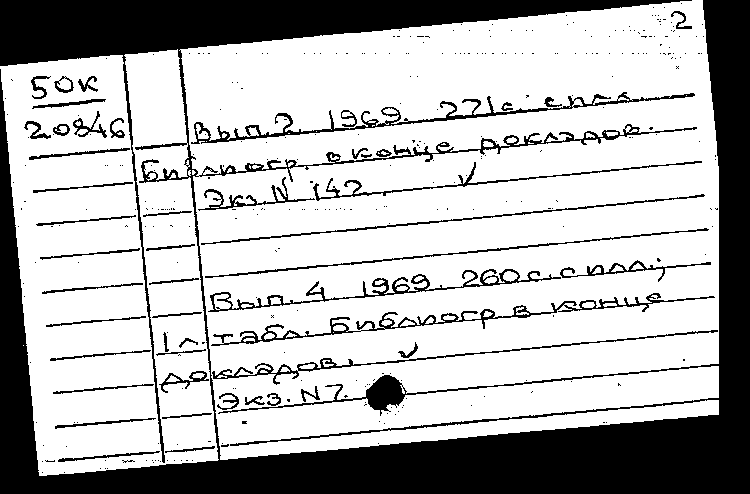 2
50к
20846
Вып. 2. 1969. 271 с. с илл.
Библиогр. в конце докладов.
Экз. N 142. ✓
Вып. 4 1969. 260 с. с илл.;
1 л. табл. Библиогр в конце
докладов. ✓
Экз. N 7.